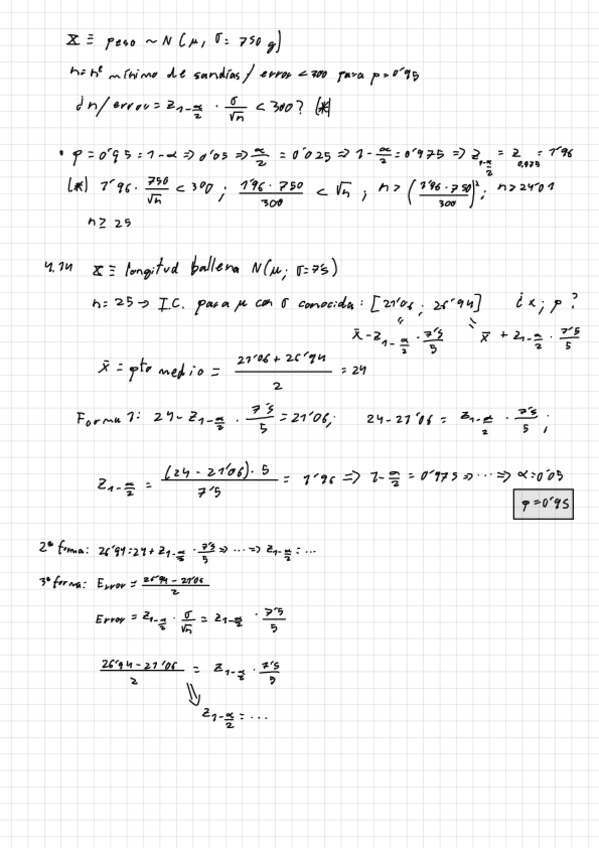 X ≡ peso ~ N(μ, σ = 750 g)
n = nº mínimo de sandías / error < 300 para p = 0'95
¿n / error = z_{1-α/2} · σ/√n < 300? (*)
• p = 0'95 = 1-α ⇒ 0'05 ⇒ α/2 = 0'025 ⇒ 1-α/2 = 0'975 ⇒ z_{1-α/2} = z_{0,975} = 1'96
(*) 1'96 · 750/√n < 300 ; (1'96 · 750)/300 < √n ; n > ((1'96 · 750)/300)² ; n > 24'01
n ≥ 25
4.14 X ≡ longitud ballena N(μ; σ = 7'5)
n = 25 → I.C. para μ con σ conocida: [21'06 ; 26'94] ¿x̄; p?
x̄ - z_{1-α/2} · 7'5/5 x̄ + z_{1-α/2} · 7'5/5
x̄ = pto medio = (21'06 + 26'94)/2 = 24
Forma 1: 24 - z_{1-α/2} · 7'5/5 = 21'06; 24 - 21'06 = z_{1-α/2} · 7'5/5 ;
z_{1-α/2} = ((24 - 21'06) · 5)/7'5 = 1'96 ⇒ 1-α/2 = 0'975 ⇒ ··· ⇒ α = 0'05
p = 0'95
2ª forma: 26'94 = 24 + z_{1-α/2} · 7'5/5 ⇒ ··· ⇒ z_{1-α/2} = ···
3ª forma: Error = (26'94 - 21'06)/2
Error = z_{1-α/2} · σ/√n = z_{1-α/2} · 7'5/5
(26'94 - 21'06)/2 = z_{1-α/2} · 7'5/5
z_{1-α/2} = ···